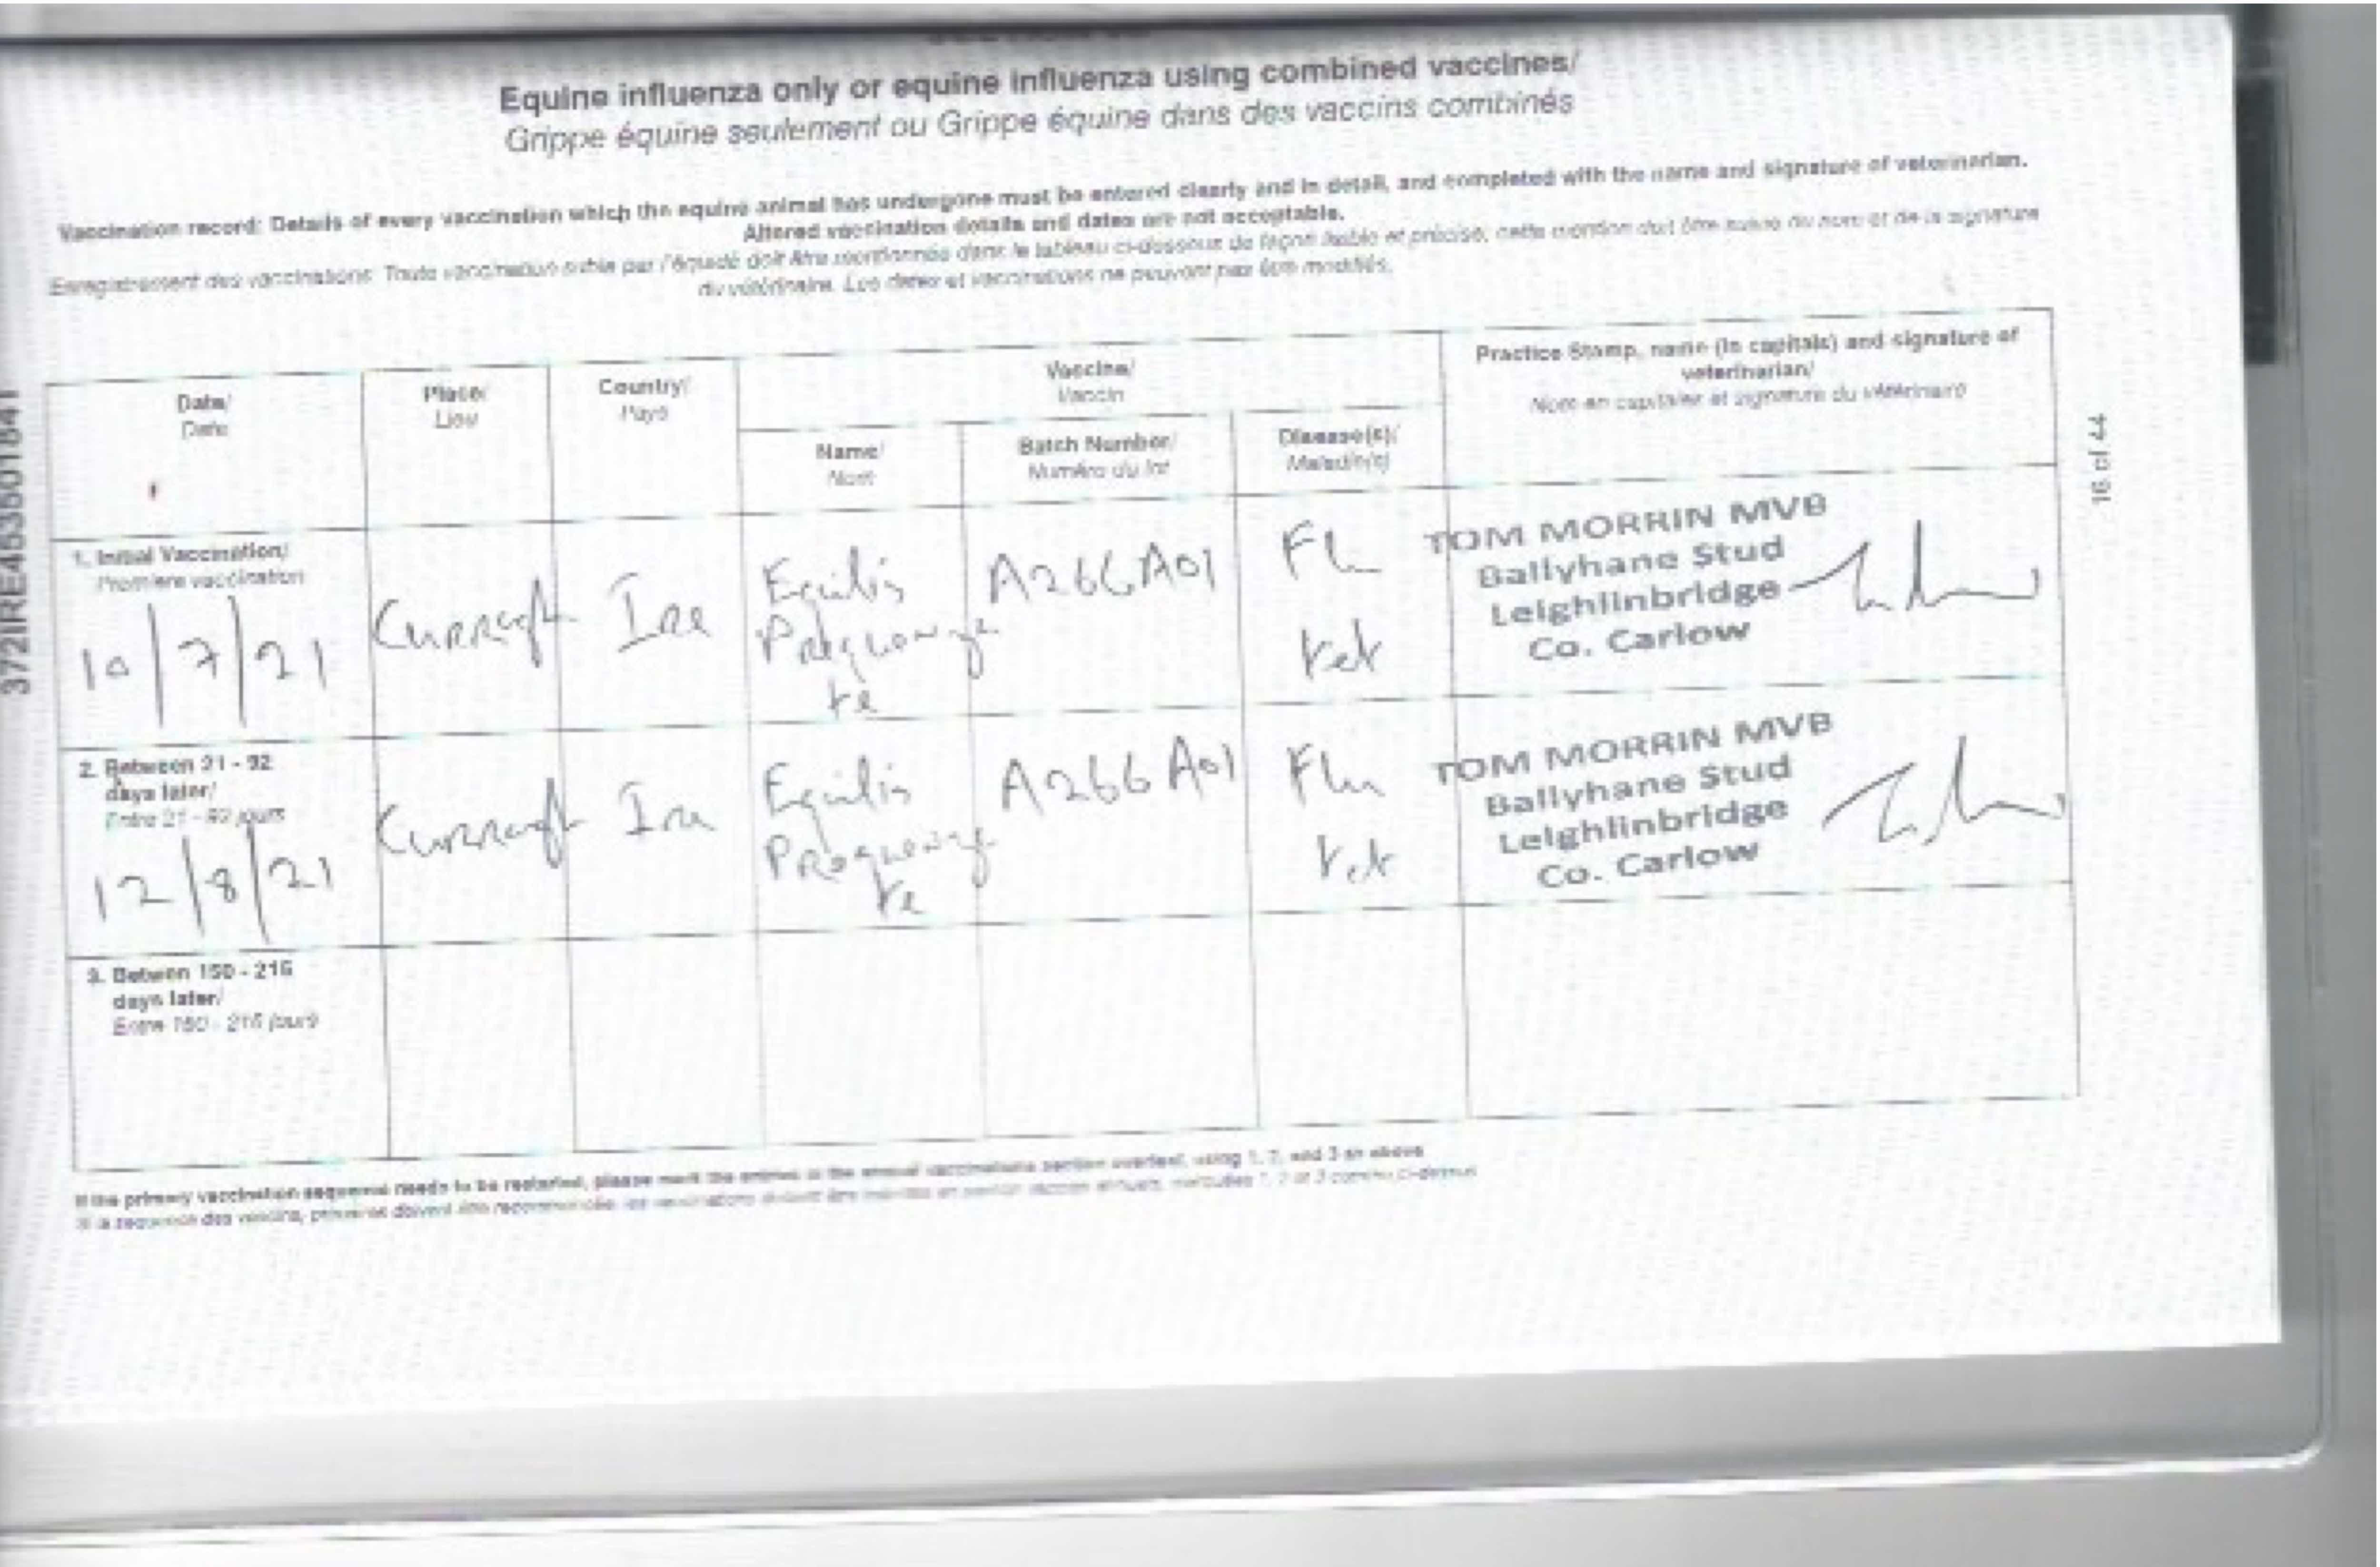 Equine influenza only or equine influenza using combined vaccines/
Grippe équine seulement ou Grippe équine dans des vaccins combinés
Vaccination record: Details of every vaccination which the equine animal has undergone must be entered clearly and in detail, and completed with the name and signature of veterinarian.
Altered vaccination details and dates are not acceptable.
Enregistrement des vaccinations: Toute vaccination subie par l'équidé doit être mentionnée dans le tableau ci-dessous de façon lisible et précise, cette mention doit être suivie du nom et de la signature
du vétérinaire. Les dates et vaccinations ne peuvent pas être modifiés.
Date/
Date
Place/
Lieu
Country/
Pays
Vaccine/
Vaccin
Name/
Nom
Batch Number/
Numéro du lot
Disease(s)/
Maladie(s)
Practice Stamp, name (in capitals) and signature of
veterinarian/
Nom en capitales et signature du vétérinaire
1. Initial Vaccination/
Première vaccination
10/7/21
Curragh
Ire
Equilis
Prequenza
te
A266A01
Flu
tet
TOM MORRIN MVB
Ballyhane Stud
Leighlinbridge
Co. Carlow
2. Between 21 - 92
days later/
Entre 21 - 92 jours
12/8/21
Curragh
Ire
Equilis
Prequenza
te
A266A01
Flu
tet
TOM MORRIN MVB
Ballyhane Stud
Leighlinbridge
Co. Carlow
3. Between 150 - 215
days later/
Entre 150 - 215 jours
If the primary vaccination sequence needs to be restarted, please mark the entries in the annual vaccinations section overleaf, using 1, 2, and 3 as above
16 of 44